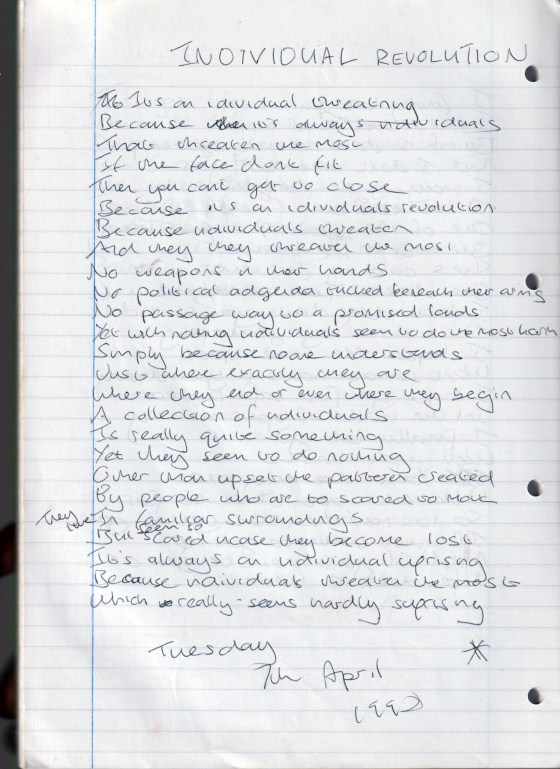 INDIVIDUAL REVOLUTION
Its an idividual threatning
Because its always individuals
That threaten the most
If the face dont fit
Then you cant get to close
Because its an idividuals revolution
Because individuals threaten
And they they threaten the most
No weapons in their hands
No political adgenda tucked beneath their arms
No passage way to a promised lands
Yet with nothing individuals seem to do the most harm
Simply because noone understands
Just where exactly they are
Where they end or even where they begin
A collection of individuals
Is really quite something
Yet they seem to do nothing
Other than upset the pattern created
By people who are to scared to move
They live In familiar surroundings
But seem so scared incase they become lost
It's always an individual uprising
Because individuals threaten the most
Which really seems hardly suprising
Tuesday *
7th April
1992